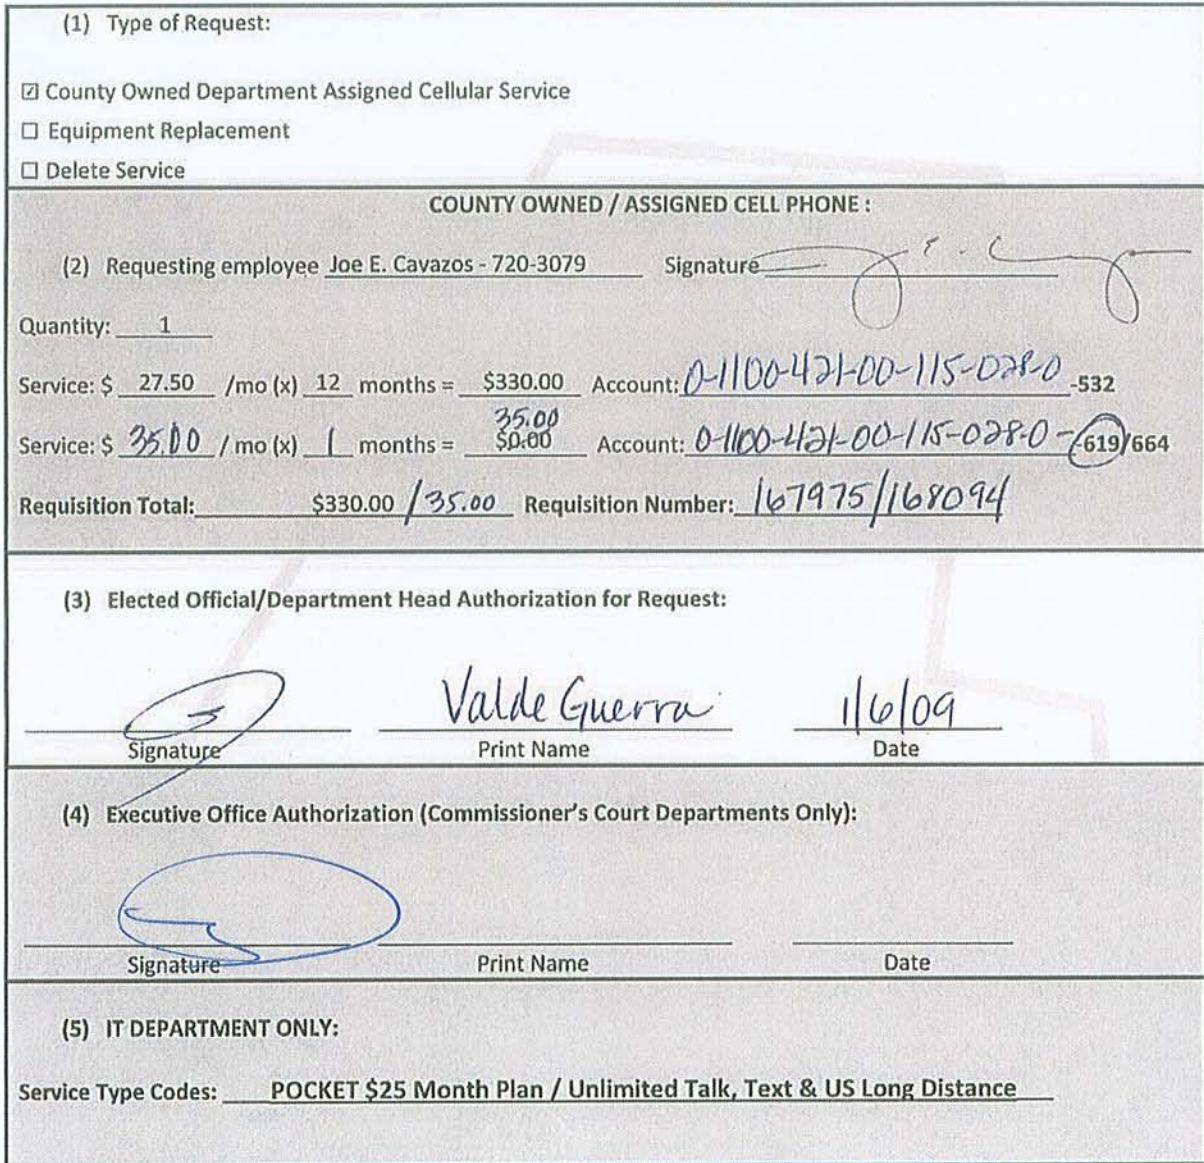 (1) Type of Request:
☑ County Owned Department Assigned Cellular Service
☐ Equipment Replacement
☐ Delete Service
COUNTY OWNED / ASSIGNED CELL PHONE :
(2) Requesting employee Joe E. Cavazos - 720-3079 Signature
Quantity: 1
Service: $ 27.50 /mo (x) 12 months = $330.00 Account: 0-1100-421-00-115-028-0 -532
35.00
Service: $ 35.00 / mo (x) 1 months = $0.00 Account: 0-1100-421-00-115-028-0 - 619/664
Requisition Total: $330.00 / 35.00 Requisition Number: 167975/168094
(3) Elected Official/Department Head Authorization for Request:
Valde Guerra 1/6/09
Signature Print Name Date
(4) Executive Office Authorization (Commissioner's Court Departments Only):
Signature Print Name Date
(5) IT DEPARTMENT ONLY:
Service Type Codes: POCKET $25 Month Plan / Unlimited Talk, Text & US Long Distance